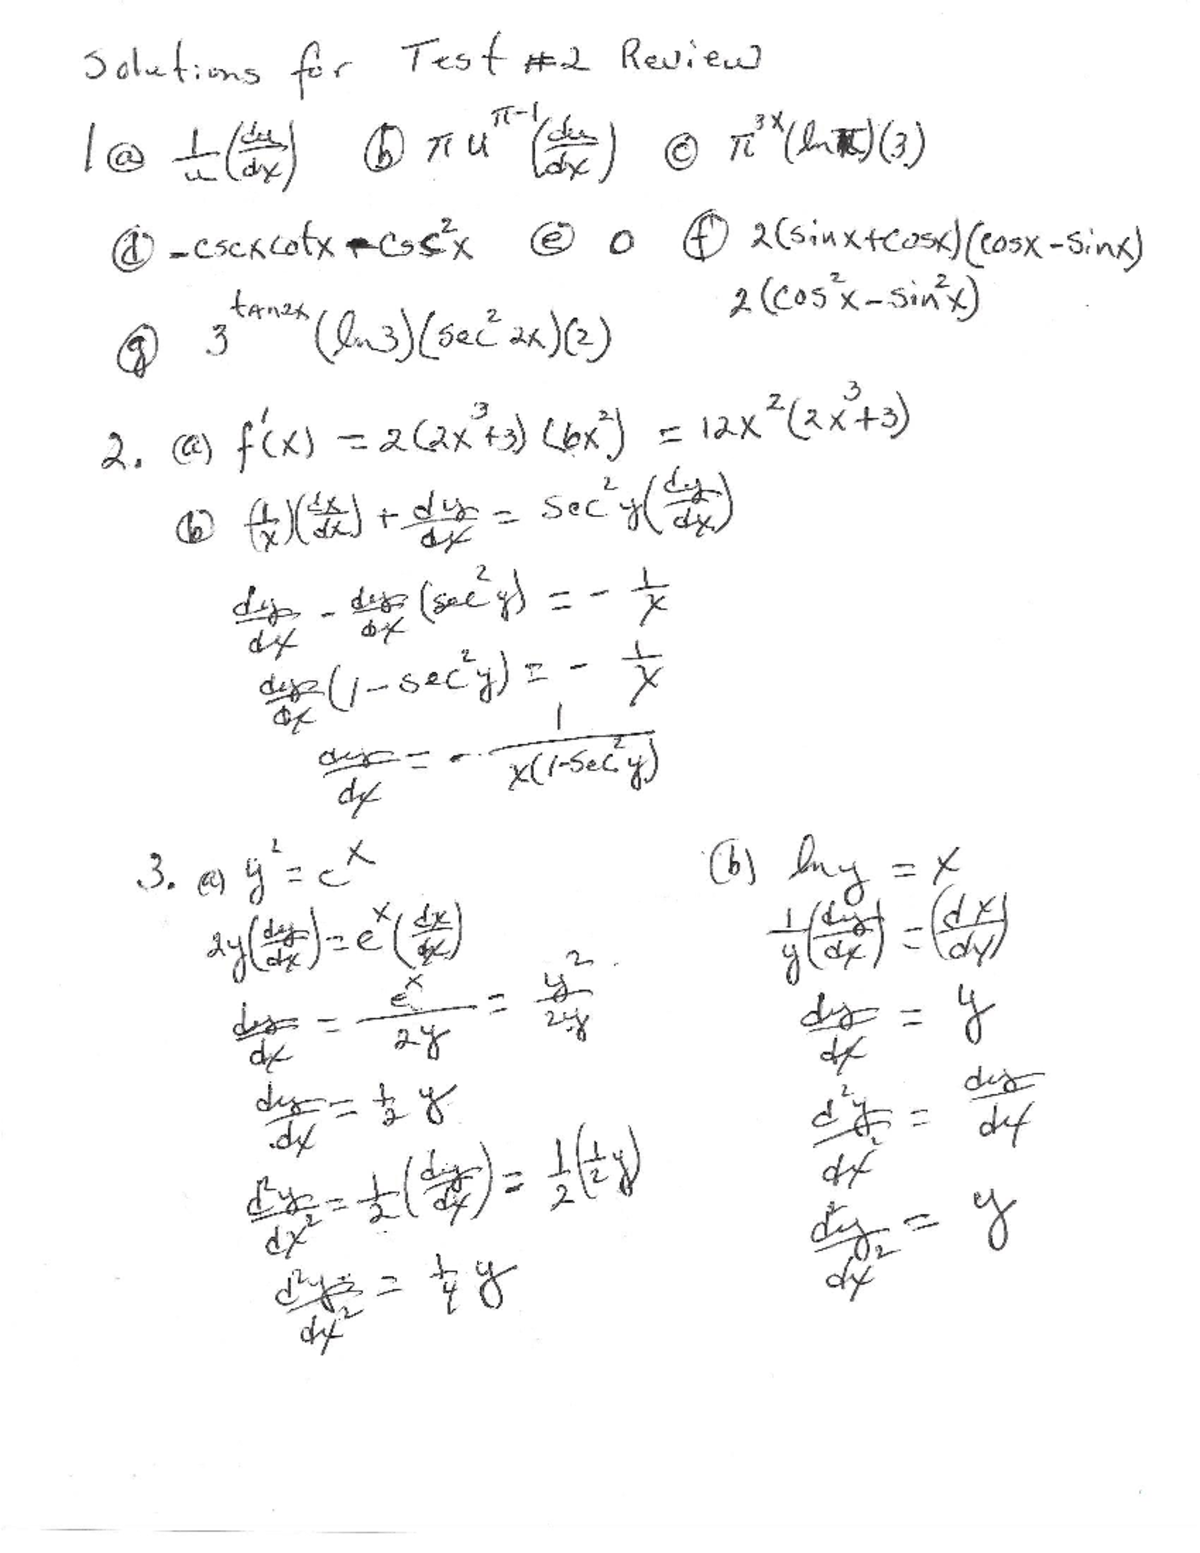 Solutions for Test #2 Review
1 ⓐ 1/u (du/dx) ⓑ π u^(π-1) (du/dx) ⓒ π^(3x) (ln π)(3)
ⓓ -cscx cotx - csc²x ⓔ 0 ⓕ 2(sinx+cosx)(cosx-sinx)
2(cos²x-sin²x)
ⓖ 3^(tan2x) (ln3)(sec²2x)(2)
2. ⓐ f'(x) = 2(2x³+3)(6x²) = 12x²(2x³+3)
ⓑ (1/x)(dx/dx) + dy/dx = sec²y(dy/dx)
dy/dx - dy/dx (sec²y) = - 1/x
dy/dx (1-sec²y) = - 1/x
dy/dx = - 1/(x(1-sec²y))
3. ⓐ y² = e^x
2y(dy/dx) = e^x (dx/dx)
dy/dx = e^x/2y = y²/2y
dy/dx = 1/2 y
d²y/dx² = 1/2 (dy/dx) = 1/2 (1/2 y)
d²y/dx² = 1/4 y
(b) ln y = x
1/y (dy/dx) = (dx/dy)
dy/dx = y
d²y/dx² = dy/dx
d²y/dx² = y